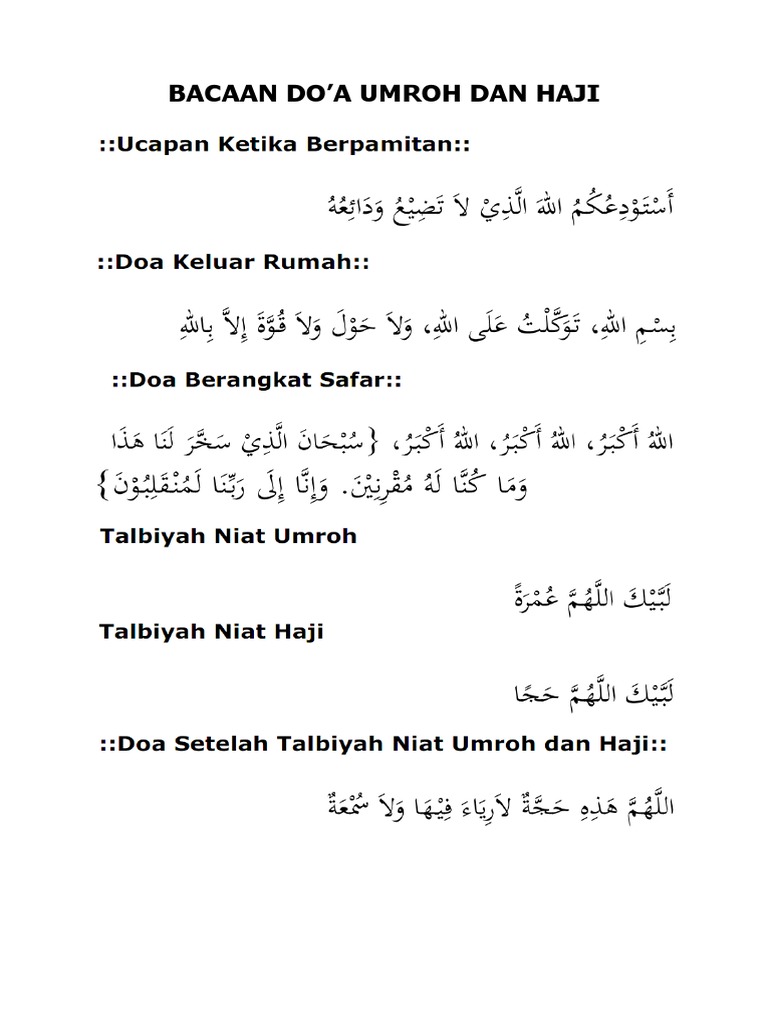 BACAAN DO’A UMROH DAN HAJI
::Ucapan Ketika Berpamitan::
أَسْتَوْدِعُكُمُ اللهَ الَّذِيْ لاَ تَضِيْعُ وَدَائِعُهُ
::Doa Keluar Rumah::
بِسْمِ اللهِ، تَوَكَّلْتُ عَلَى اللهِ، وَلاَ حَوْلَ وَلاَ قُوَّةَ إِلاَّ بِاللهِ
::Doa Berangkat Safar::
اللهُ أَكْبَرُ، اللهُ أَكْبَرُ، اللهُ أَكْبَرُ، {سُبْحَانَ الَّذِيْ سَخَّرَ لَنَا هَذَا
وَمَا كُنَّا لَهُ مُقْرِنِيْنَ. وَإِنَّا إِلَى رَبِّنَا لَمُنْقَلِبُوْنَ}
Talbiyah Niat Umroh
لَبَّيْكَ اللَّهُمَّ عُمْرَةً
Talbiyah Niat Haji
لَبَّيْكَ اللَّهُمَّ حَجًا
::Doa Setelah Talbiyah Niat Umroh dan Haji::
اللَّهُمَّ هَذِهِ حَجَّةٌ لاَرِيَاءَ فِيْهَا وَلاَ سُمْعَةٌ